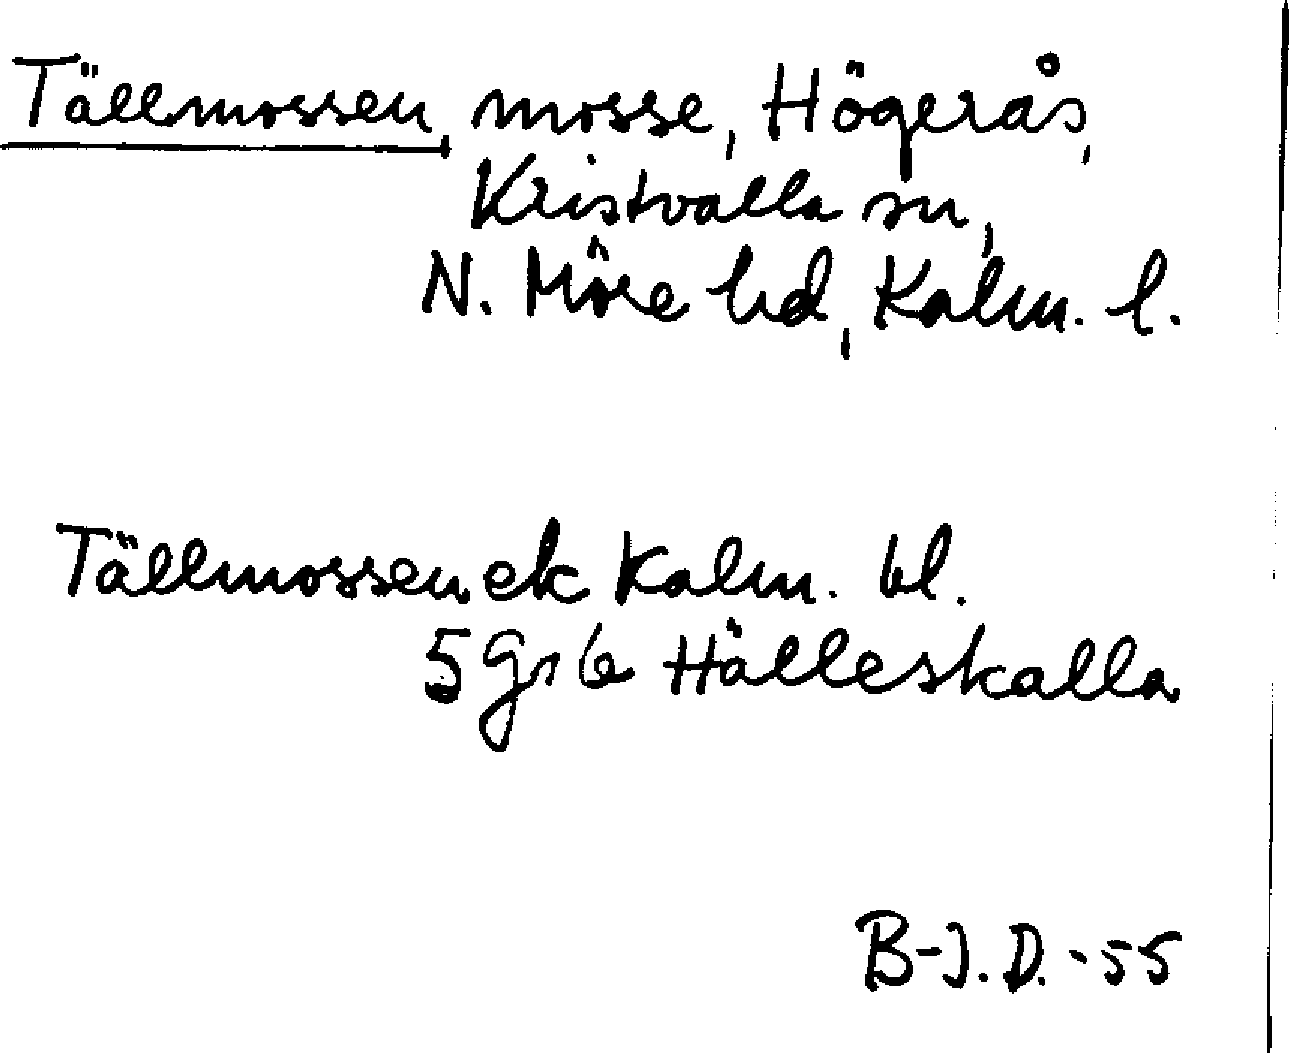 Tällmossen, mosse, Högerås,
Kristvalla sn,
N. Möre hd, Kalm. l.
Tällmossen, ek Kalm. bl.
5 Gr 6 Hälleskalla
B-J. D. -55